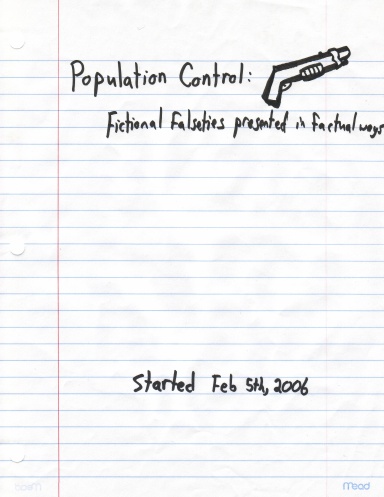 Population Control:
Fictional Falseties presented in factual ways
Started Feb 5th, 2006
Mead